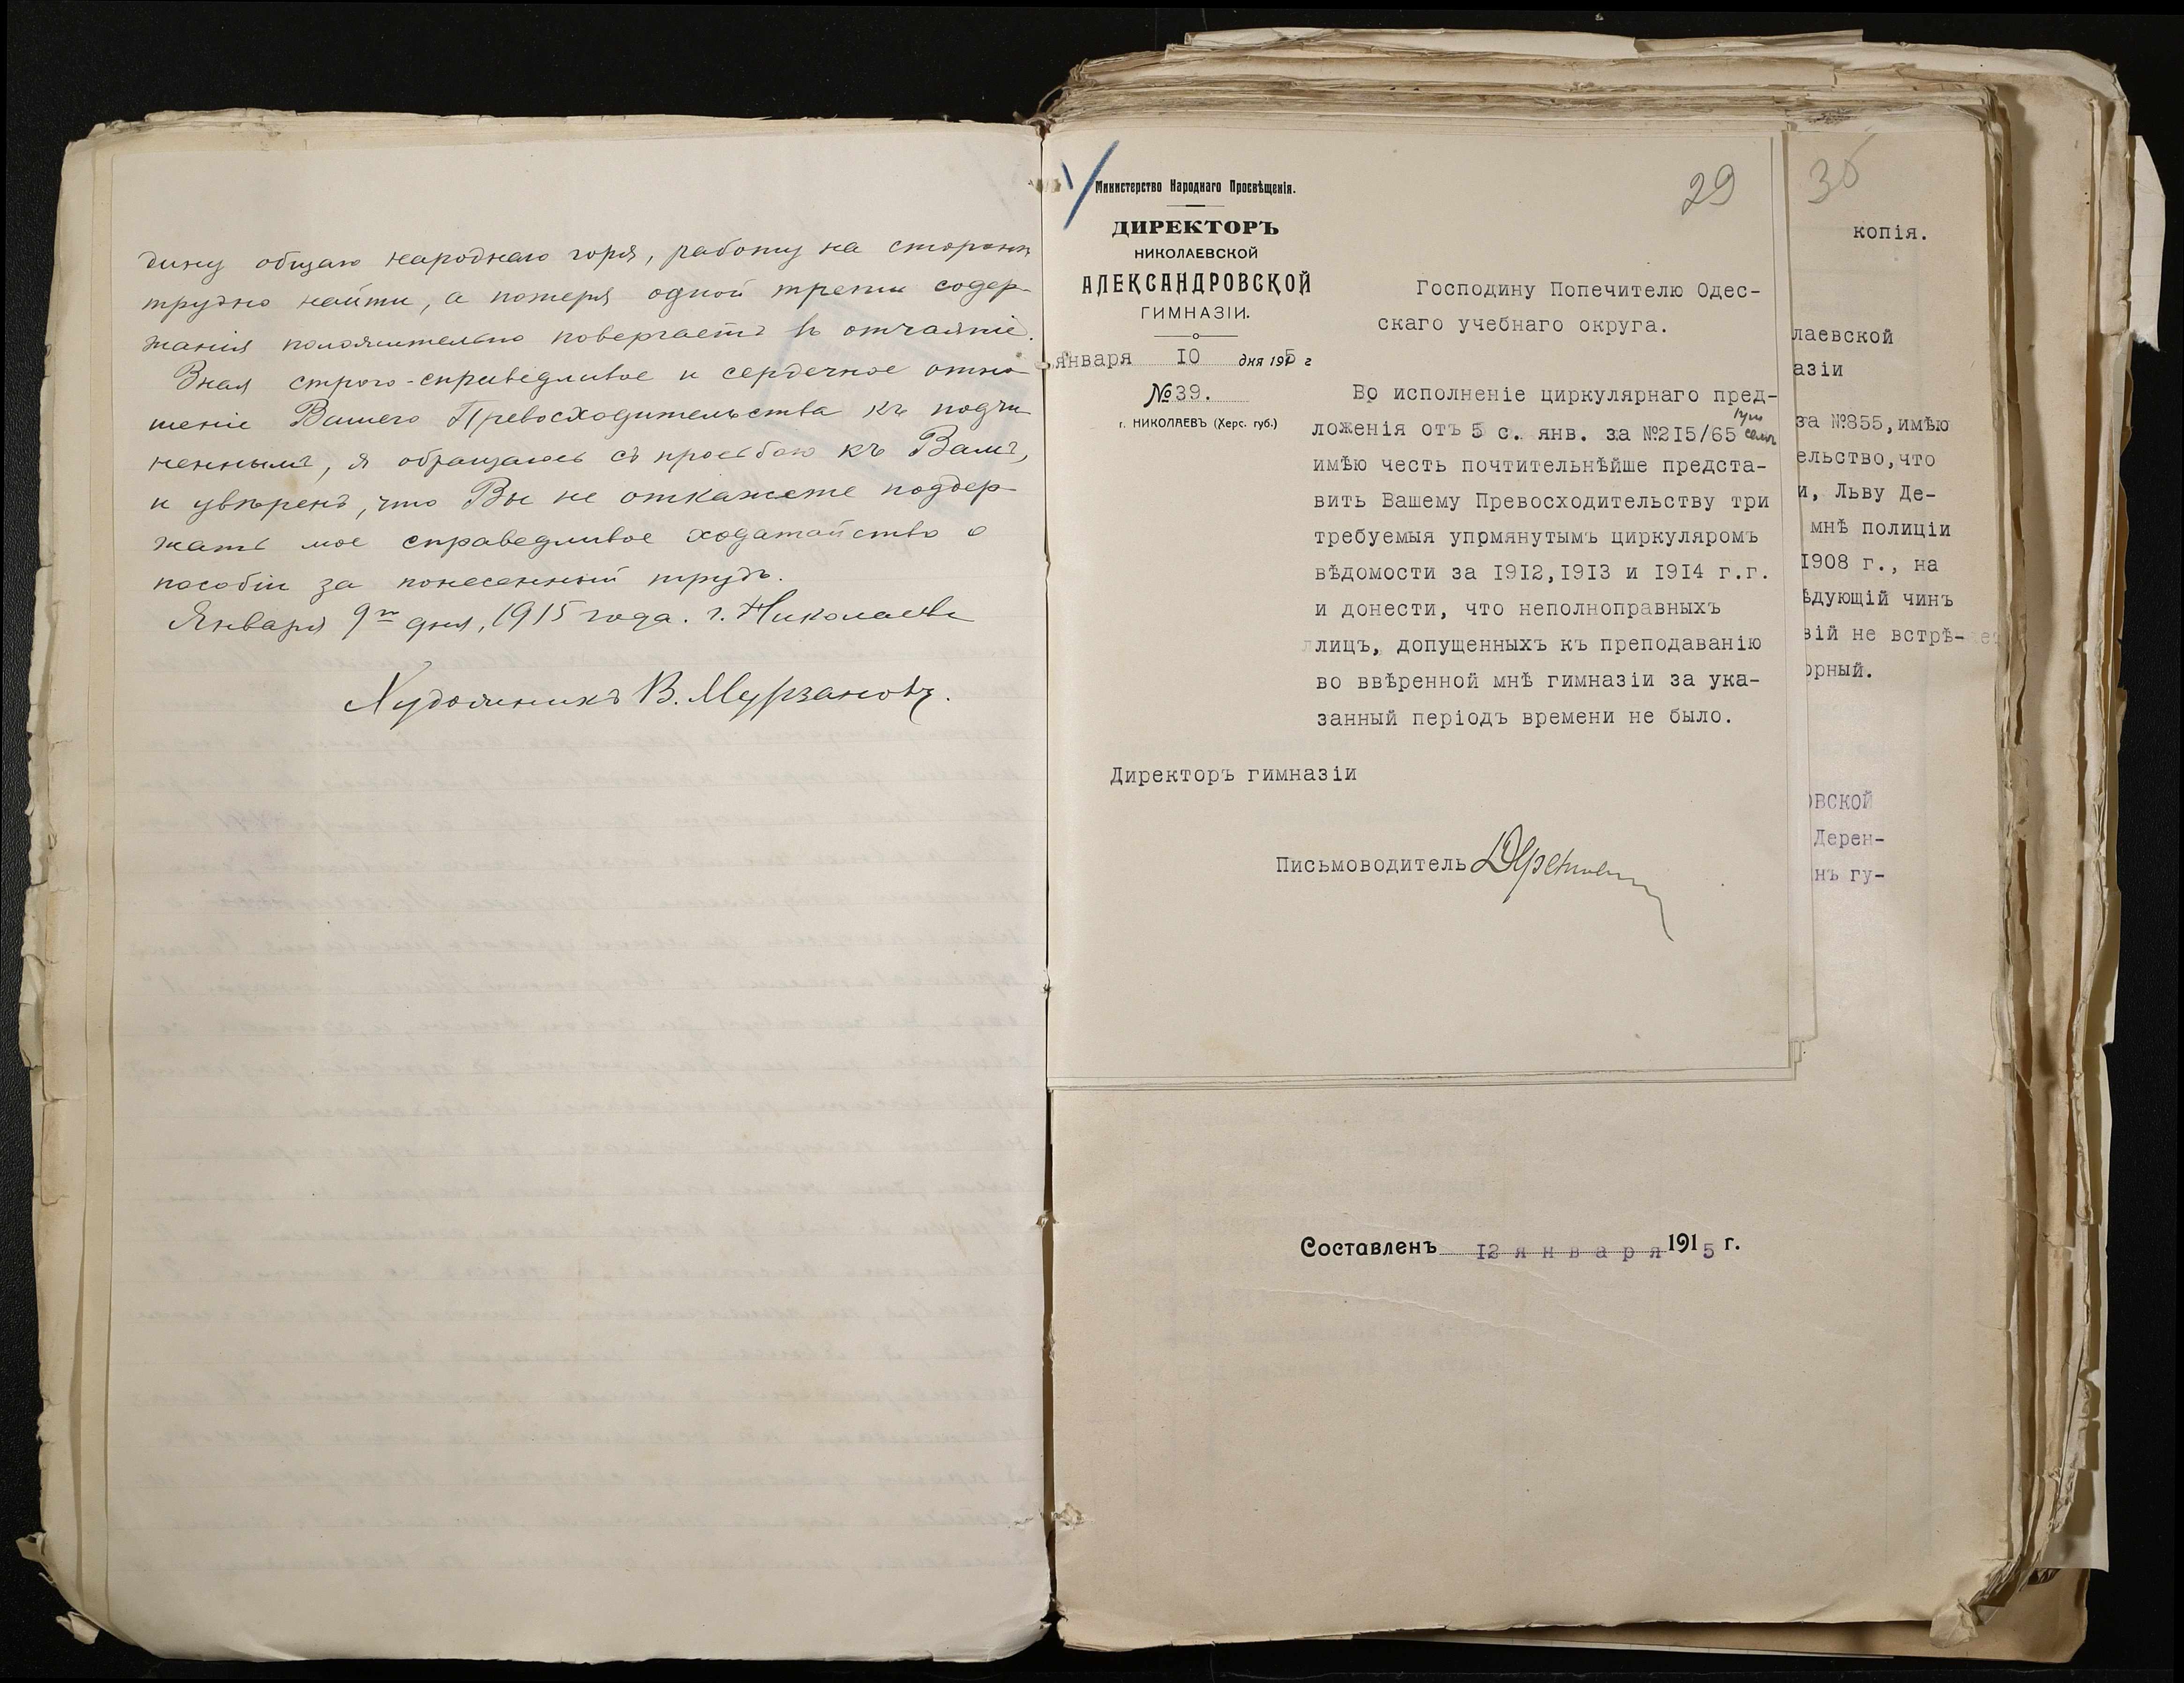 дину общаго народнаго горя, работу на сторонѣ
трудно найти, а потеря одной трети содер-
жанія положительно повергаетъ въ отчаяніе.
Зная строго-справедливое и сердечное отно
шеніе Вашего Превосходительства къ подчи
неннымъ, я обращаюсь съ просьбою къ Вамъ,
и увѣренъ, что Вы не откажете поддер-
жать мое справедливое ходатайство о
пособіи за понесенный трудъ.
Января 9го дня, 1915 года. г. Николаевъ
Художникъ В. Мурзановъ.
Министерство Народнаго Просвѣщенія.
ДИРЕКТОРЪ
НИКОЛАЕВСКОЙ
АЛЕКСАНДРОВСКОЙ
ГИМНАЗІИ.
января 10 дня 1915 г
№ 39.
г. НИКОЛАЕВЪ (Херс. губ.)
29
Господину Попечителю Одес-
скаго учебнаго округа.
Во исполненіе циркулярнаго пред-
ложенія отъ 5 с. янв. за №215/65
имѣю честь почтительнѣйше предста-
вить Вашему Превосходительству три
требуемыя упрмянутымъ циркуляромъ
вѣдомости за 1912,1913 и 1914 г.г.
и донести, что неполноправныхъ
лицъ, допущенныхъ къ преподаванію
во ввѣренной мнѣ гимназіи за ука-
занный періодъ времени не было.
Директоръ гимназіи
Письмоводитель
копія.
лаевской
азіи
за №855,имѣю
ельство,что
и, Льву Де-
мнѣ полиціи
1908 г., на
ѣдующій чинъ
вій не встрѣ-
орный.
овской
Дерен-
нъ гу-
Составленъ 12 января 1915 г.